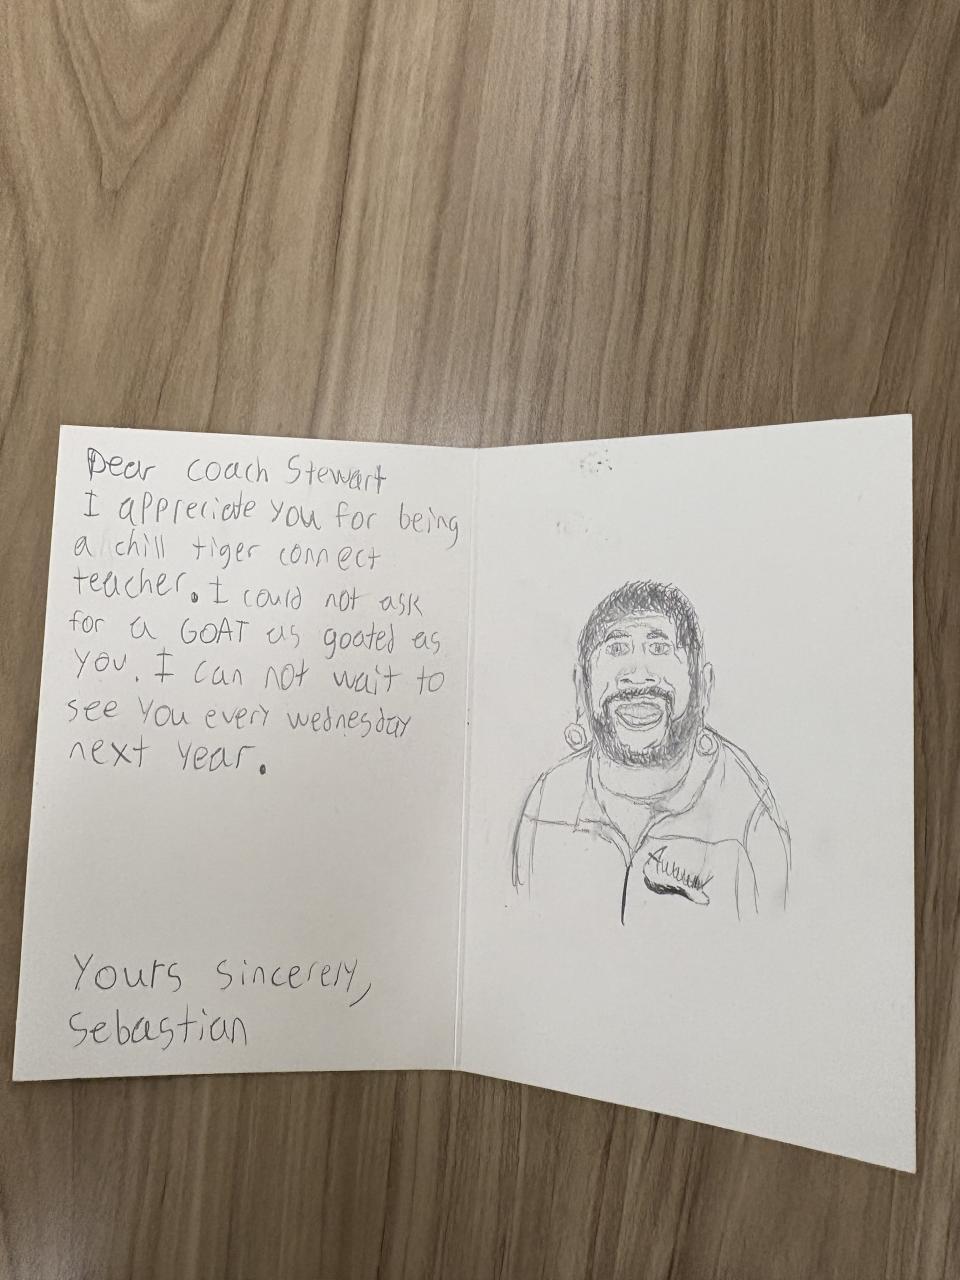 Dear coach Stewart
I appreciate you for being
a chill tiger connect
teacher. I could not ask
for a GOAT as goated as
you. I can not wait to
see you every wednesday
next year.
Yours sincerely,
Sebastian